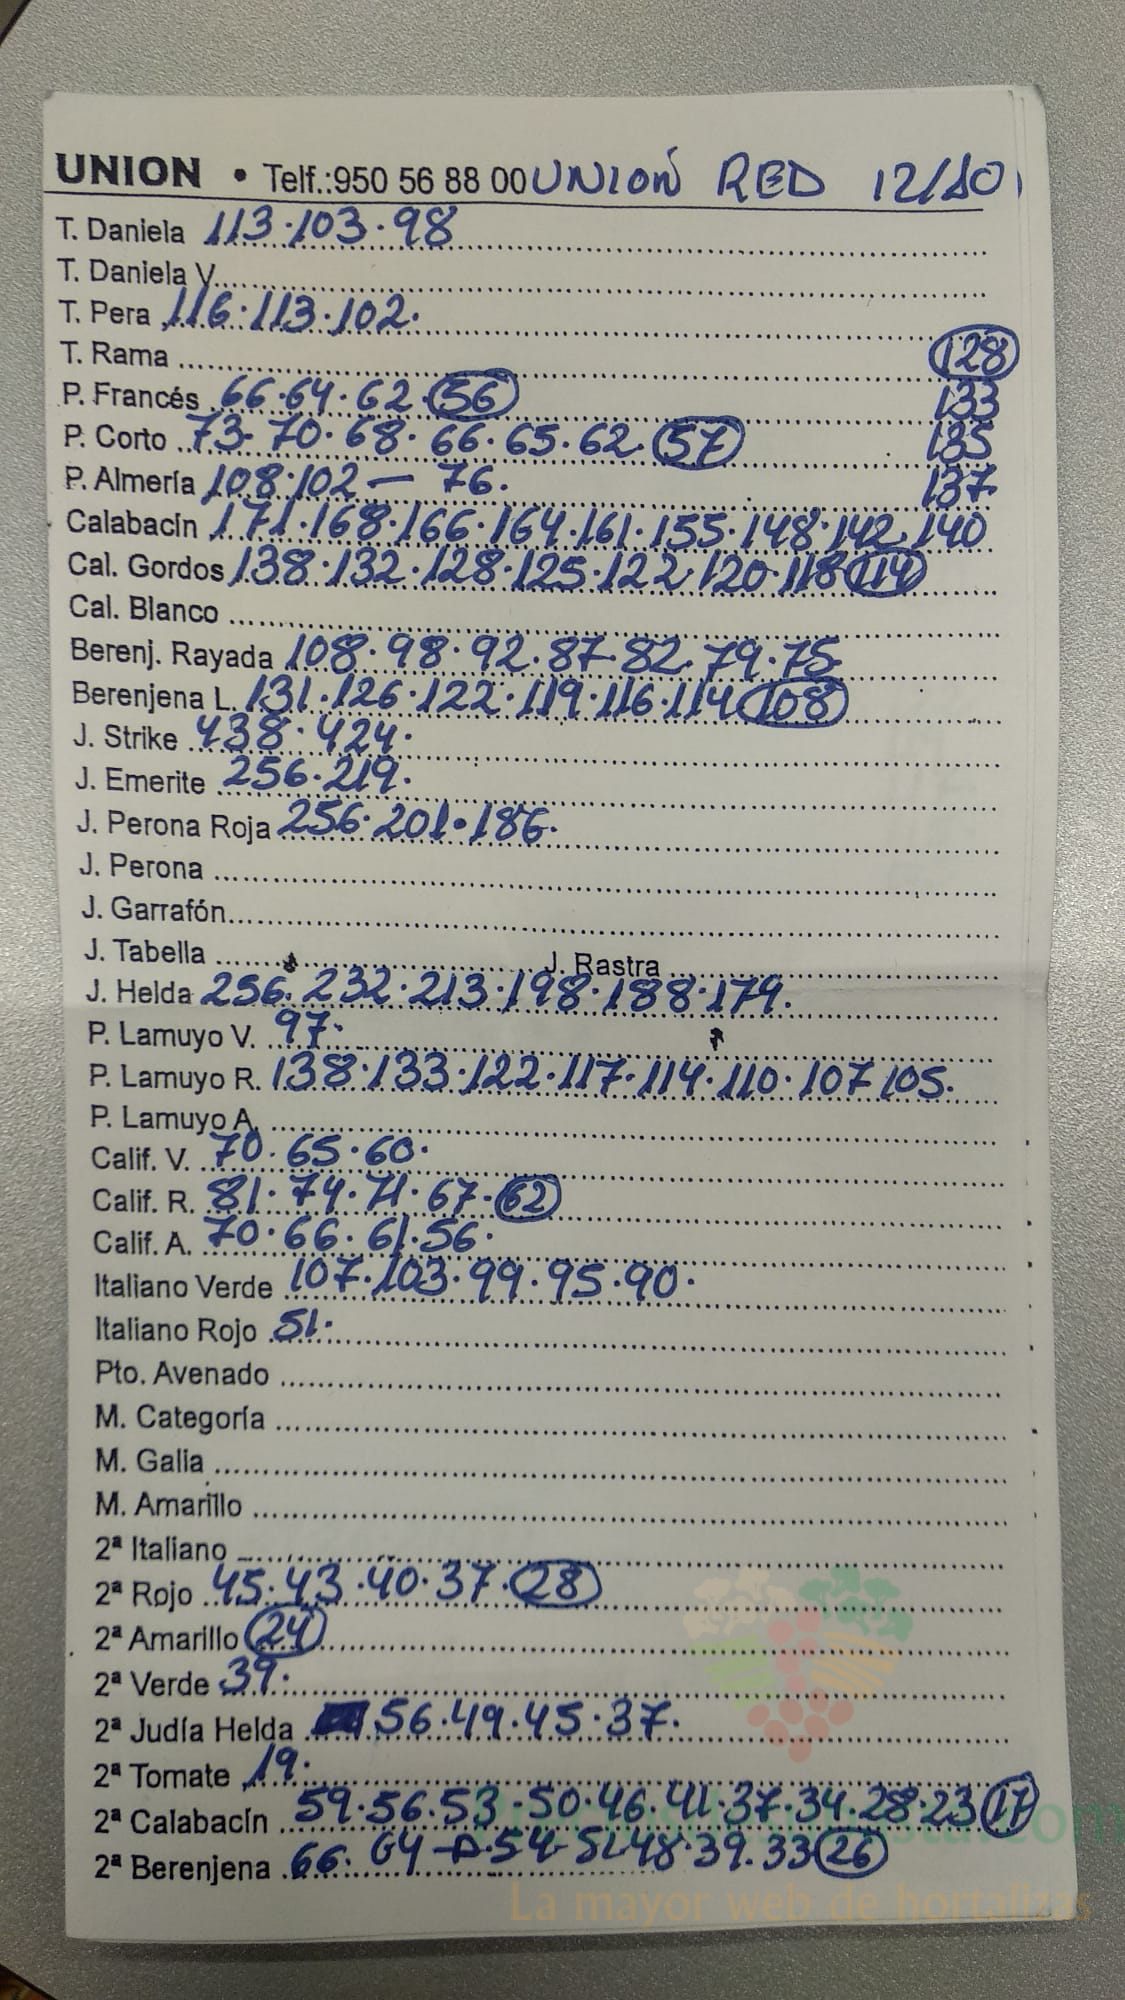 UNION • Telf.:950 56 88 00 UNIÓN RED 12/10
T. Daniela 113·103·98
T. Daniela V.
T. Pera 116·113·102·
T. Rama 128
P. Francés 66·64·62·56 133
P. Corto 73·70·68·66·65·62·57 135
P. Almería 108·102 — 76· 137
Calabacín 171·168·166·164·161·155·148·142·140
Cal. Gordos 138·132·128·125·122·120·118 114
Cal. Blanco
Berenj. Rayada 108·98·92·87·82·79·75
Berenjena L. 131·126·122·119·116·114 108
J. Strike 438·424·
J. Emerite 256·219·
J. Perona Roja 256·201·186·
J. Perona
J. Garrafón
J. Tabella J. Rastra
J. Helda 256·232·213·198·188·179·
P. Lamuyo V. 97·
P. Lamuyo R. 138·133·122·117·114·110·107 105·
P. Lamuyo A.
Calif. V. 70·65·60·
Calif. R. 81·74·71·67·62
Calif. A. 70·66·61·56·
Italiano Verde 107·103·99·95·90·
Italiano Rojo 51·
Pto. Avenado
M. Categoría
M. Galia
M. Amarillo
2ª Italiano
2ª Rojo 45·43·40·37·28
2ª Amarillo 24
2ª Verde 39·
2ª Judía Helda 56·49·45·37·
2ª Tomate 19·
2ª Calabacín 59·56·53·50·46·41·37·34·28·23 17
2ª Berenjena 66· 64 ·54- 51·48·39·33 26
La mayor web de hortalizas